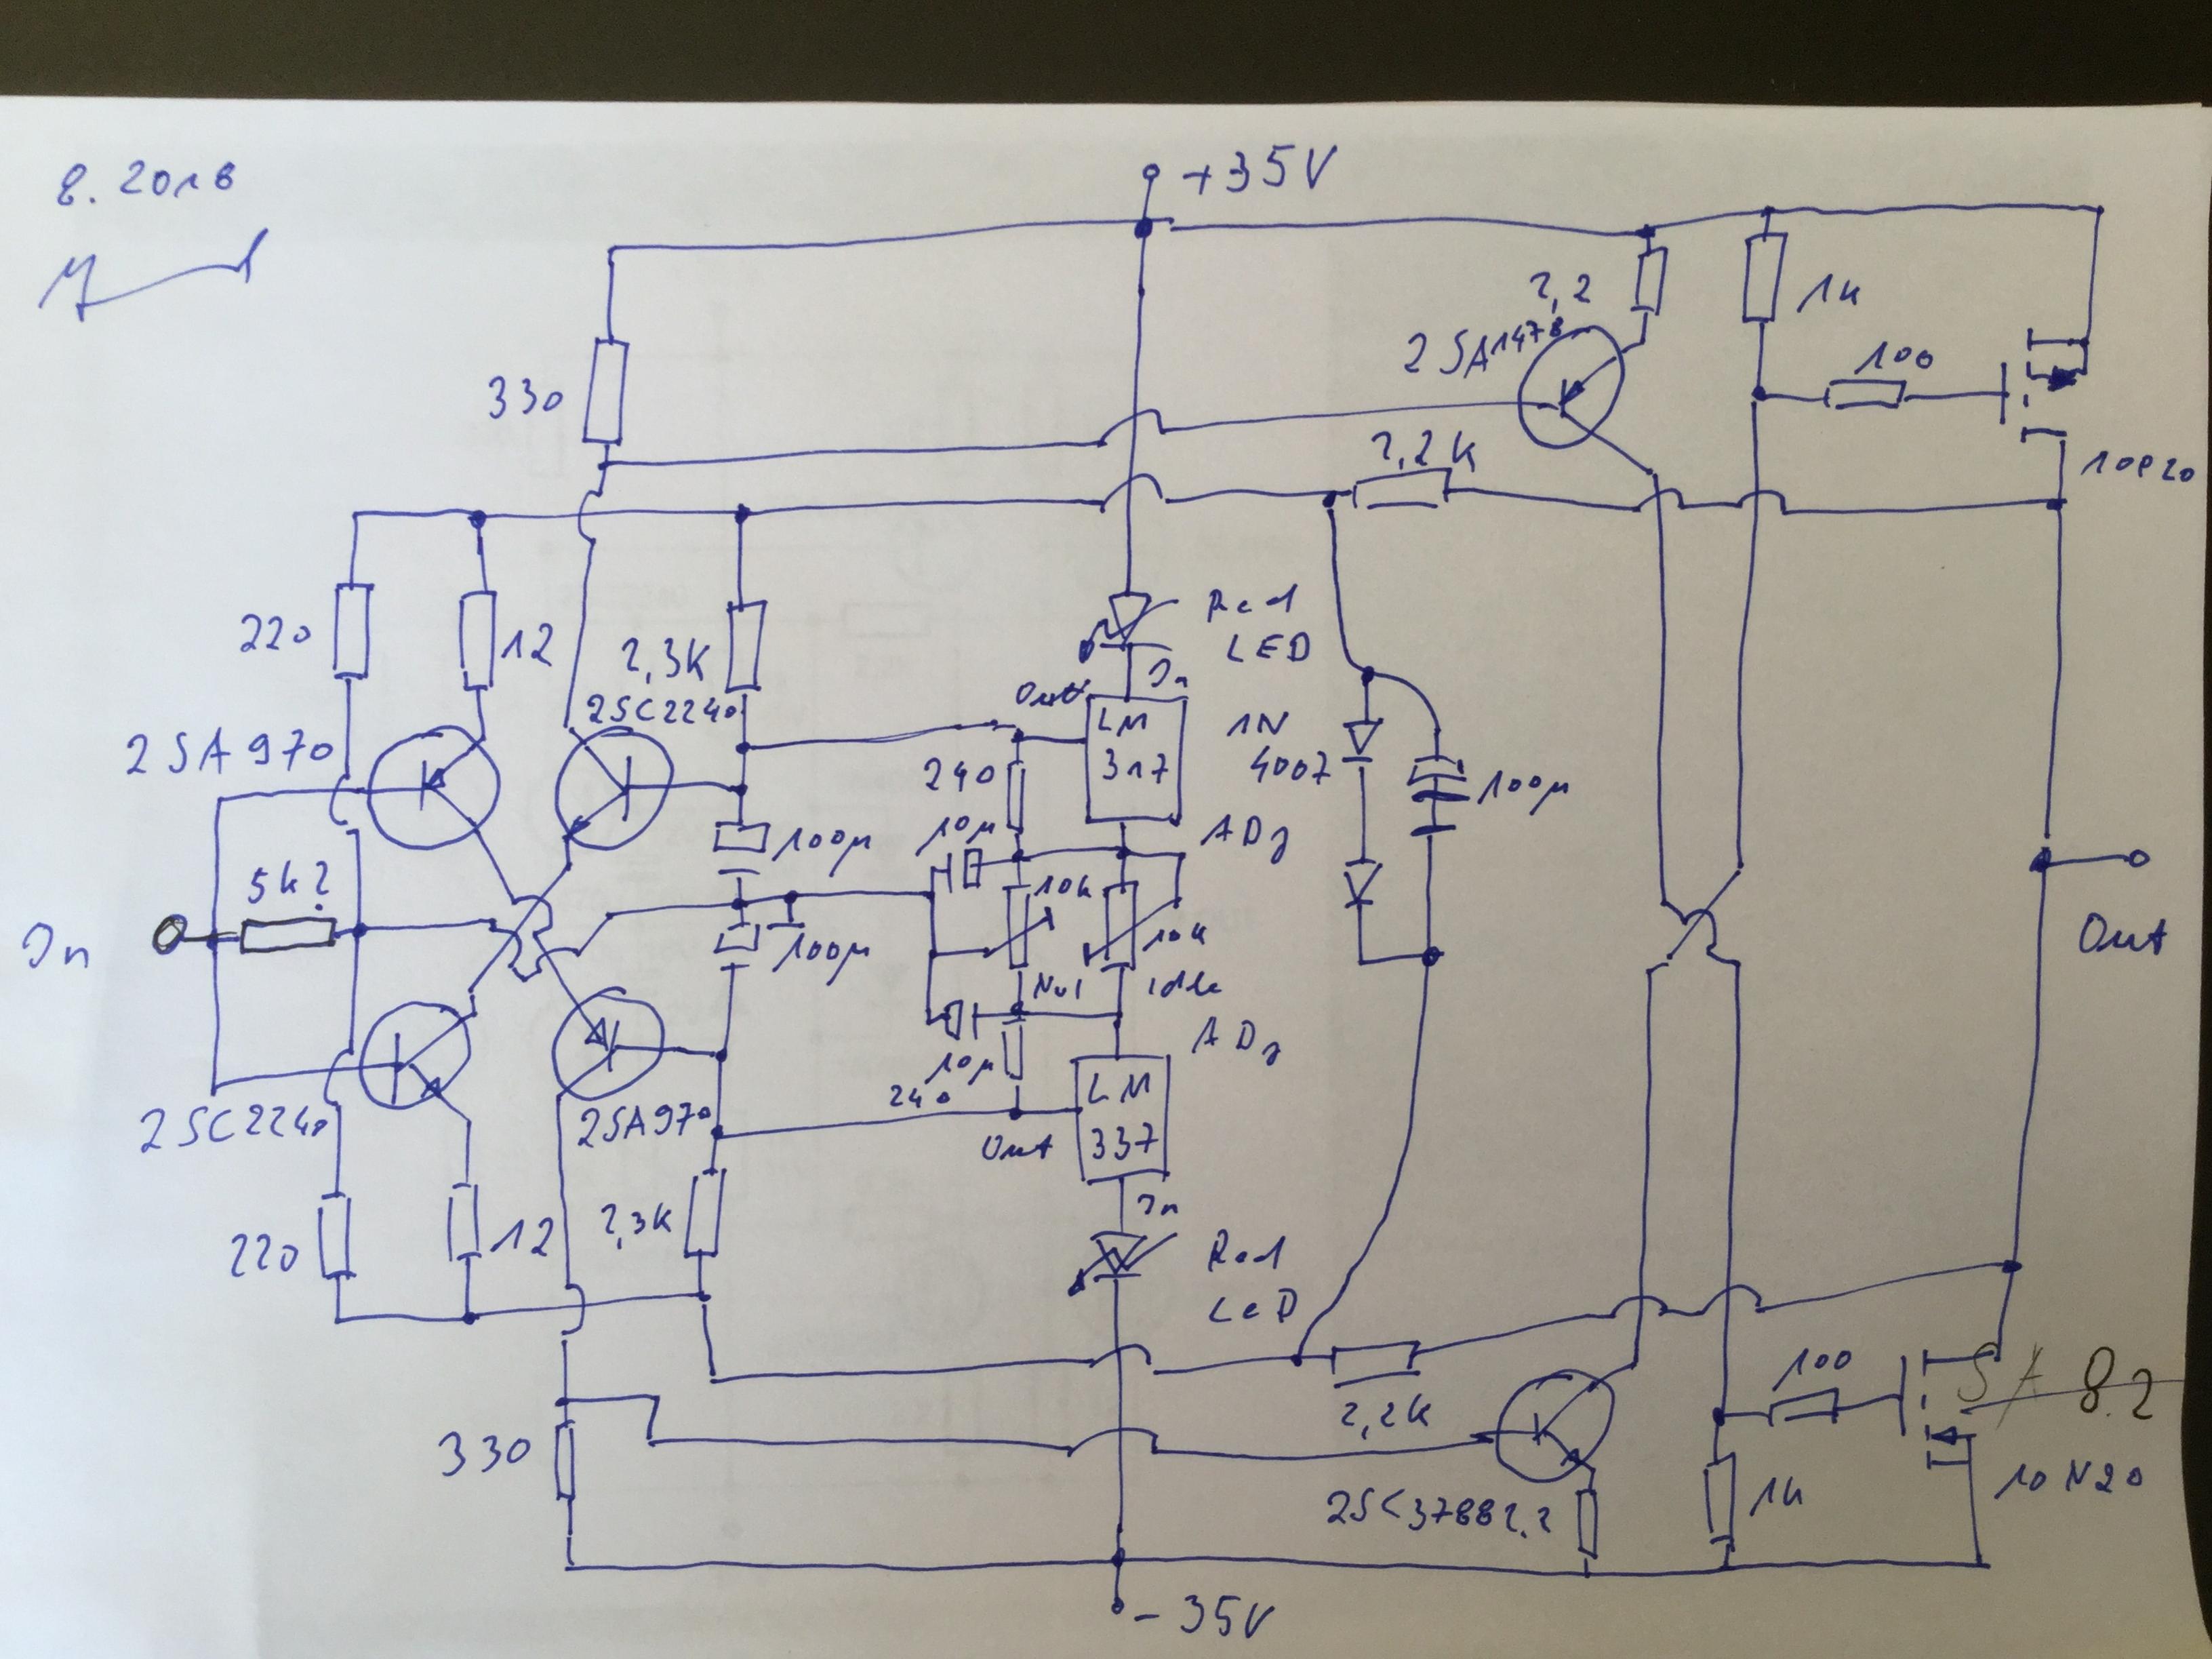 8. 2018
+35V
2,2
1k
2SA1478
100
330
2,2K
10P20
220
12
2,3K
2SC2240
Red
LED
Out
In
LM
317
1N
4007
2SA970
240
10µ
ADj
100µ
100µ
5k?
10k
In
100µ
10k
Out
Nul
idle
ADj
10µ
240
LM
337
2SC2240
2SA970
Out
In
220
12
2,3K
Red
LeD
100
SA 8.2
2,2K
330
10N20
1k
2SC3788
2,2
-35V